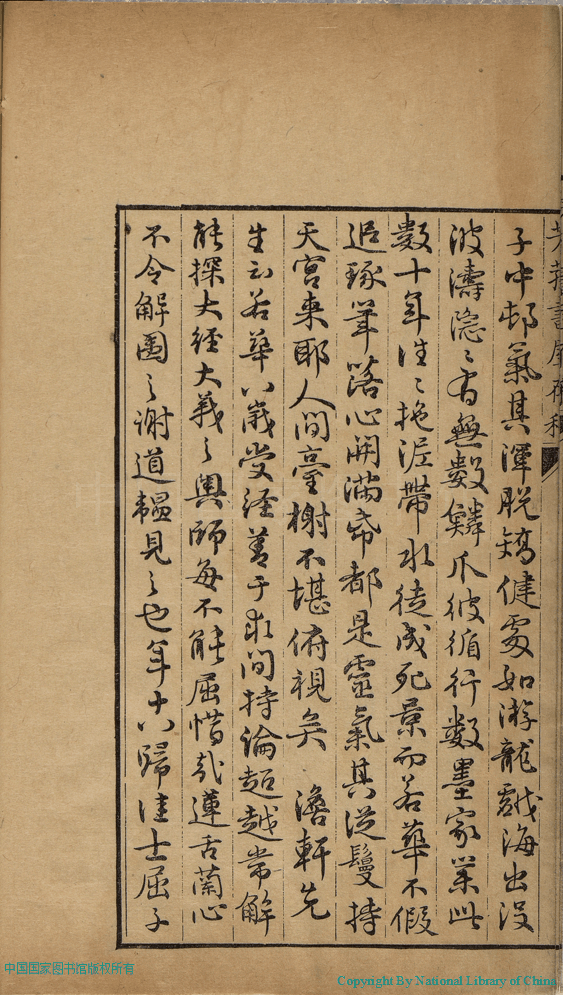 子中邨氣其渾脫矯健處如游龍戲海出沒
波濤隱〻有無數鱗爪彼循行數墨家業此
數十年往〻拖泥帶水徒成死景而若華不假
追琢筆落心開滿帋都是靈氣其從鬘持
天宮來耶人間臺榭不堪俯視矣 澹軒先
生云若華八歲受經善于求間持論超越常解
能探大經大義之奧師每不能屈惜哉蓮舌蘭心
不令解圍之謝道韞見之也年十八歸佳士屈子
書屋
中国国家图书馆版权所有
Copyright By National Library of China